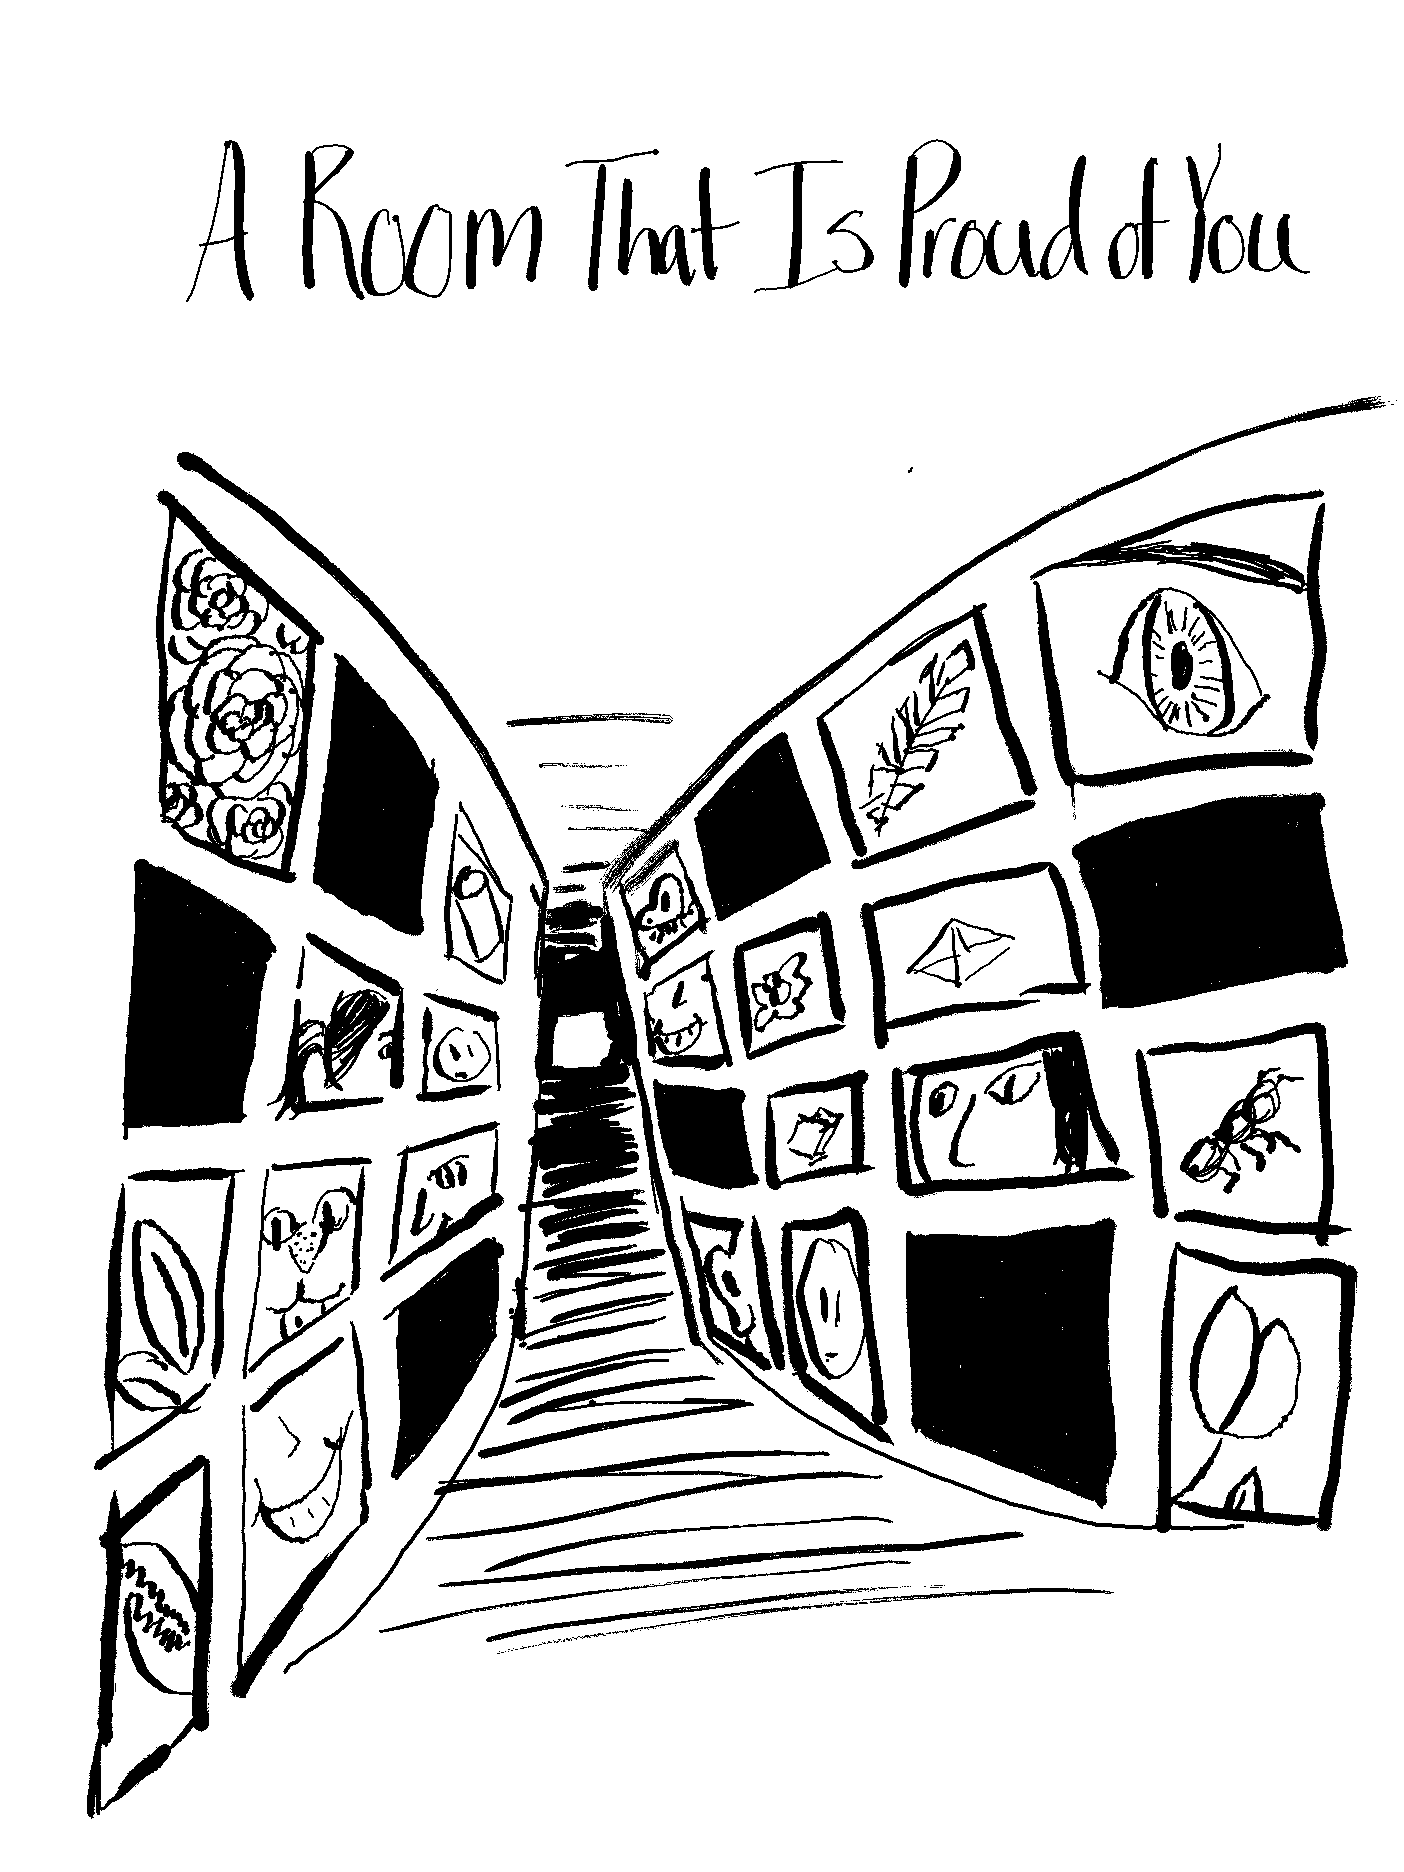 A Room That Is Proud of You